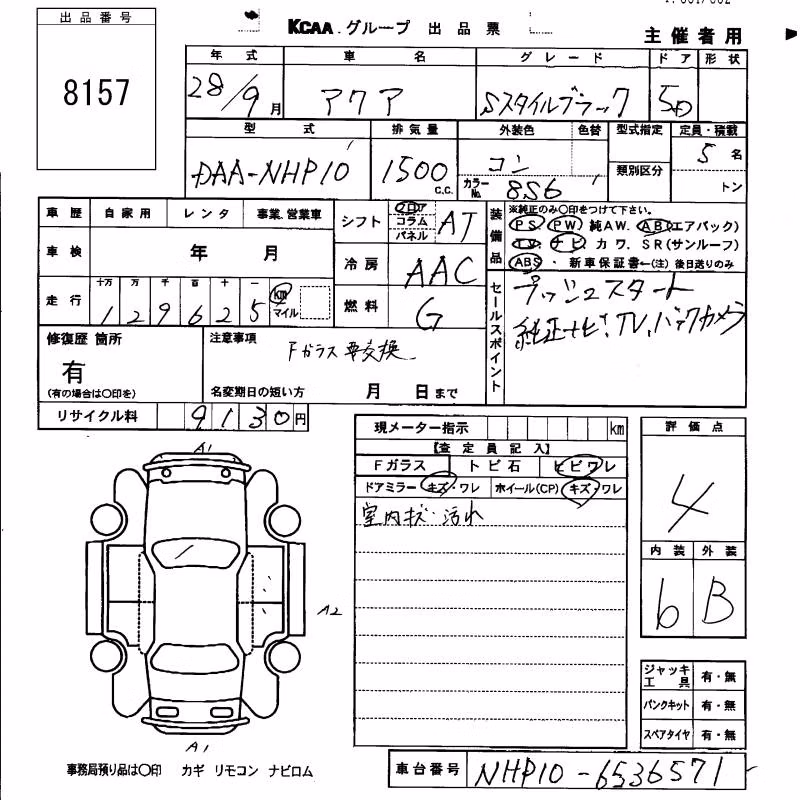 出品番号
8157
KCAA.グループ 出品票
主催者用
年式 車名 グレード ドア 形状
28/9月 アクア Sスタイルブラック 5D
型式 排気量 外装色 色替 型式指定 定員・積載
DAA-NHP10 1500 c.c. コン 類別区分 5名
カラーNo. 8S6 トン
車歴 自家用 レンタ 事業.営業車
シフト フロア コラム パネル AT
装備品
※純正のみ〇印をつけて下さい。
PS. PW 純AW. AB(エアバック)
TV. ナビ. カワ. SR(サンルーフ)
ABS ・ 新車保証書←(注) 後日送りのみ
車検 年 月
冷房 AAC
走行 十万 万 千 百 十 一
129625 km マイル
燃料 G
セールスポイント
プッシュスタート
純正ナビ、TV、バックカメラ
修復歴 箇所
有
(有の場合は〇印を)
注意事項
Fガラス要交換
名変期日の短い方 月 日まで
リサイクル料 9130円
現メーター指示 km
【査定員記入】
Fガラス トビ石 ヒビワレ
ドアミラー キズ・ワレ ホイール(CP) キズ・ワレ
室内キズ・汚れ
評価点
4
内装 外装
6 B
A1
A2
A1
ジャッキ工具 有・無
パンクキット 有・無
スペアタイヤ 有・無
事務局預り品は〇印 カギ リモコン ナビロム
車台番号 NHP10-6536571